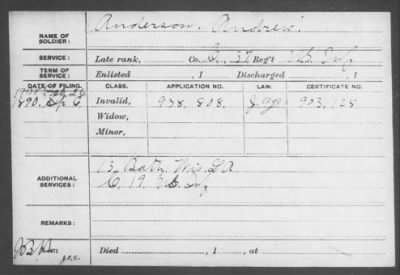 Anderson, Andrew
NAME OF SOLDIER:
SERVICE: Late rank, Co. , 37 Reg't U.S. Inf
TERM OF SERVICE: Enlisted , 1 Discharged , 1
DATE OF FILING. CLASS. APPLICATION NO. LAW. CERTIFICATE NO.
1890, Sep 6 Invalid, 938.808. 903.128
Widow,
Minor,
ADDITIONAL SERVICES:
13, Batty Wis L A
C, 19, U.S. Inf
REMARKS:
Died , 1 , at